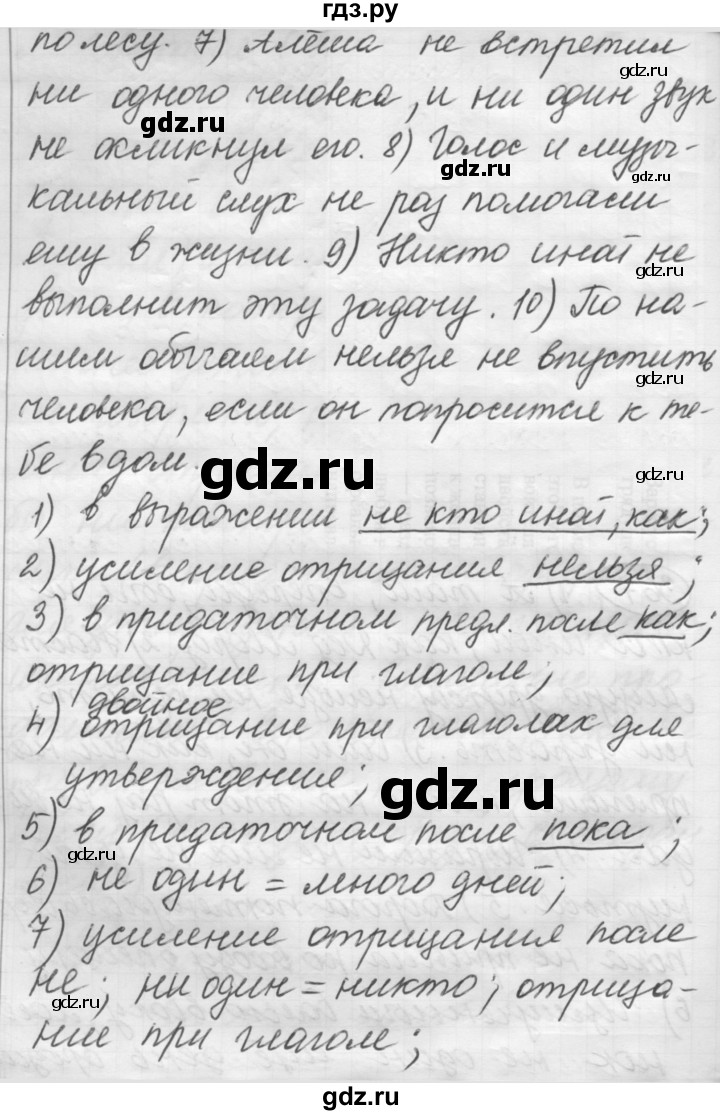 гдз.ру
по лесу. 7) Алёша не встретил
gdz.ru
ни одного человека, и ни один звук
gdz.ru
не окликнул его. 8) Голос и музы-
gdz.ru
кальный слух не раз помогали
ему в жизни. 9) Никто иной не
gdz.ru
выполнит эту задачу. 10) По на-
шим обычаям нельзя не впустить
gdz.ru
человека, если он попросится к те-
бе в дом.
gdz.ru
gdz.ru
1) в выражении не кто иной, как;
2) усиление отрицания нельзя;
gdz.ru
3) в придаточном предл. после как;
отрицание при глаголе;
двойное
4) отрицание при глаголах для
утверждения;
gdz.ru
5) в придаточном после пока;
gdz.ru
6) не один = много дней;
7) усиление отрицания после
не; ни один = никто; отрица-
gdz.ru
ние при глаголе;
gdz.ru